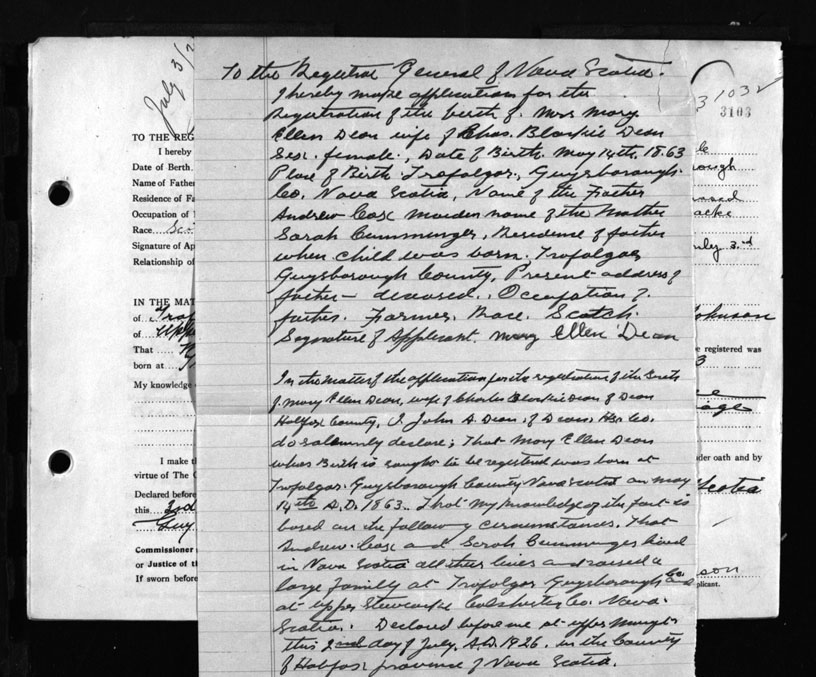 To the Registrar General of Nova Scotia.
I hereby make application for the
Registration of the birth of. Mrs Mary
Ellen Dean wife of Chas. Blaikie Dean
Sex. female., Date of Birth. May 14th. 1863
Place of Birth Trafalgar, Guysborough.
Co. Nova Scotia, Name of the Father
Andrew Cox Maiden name of the Mother
Sarah Cumminger, Residence of father
when child was born. Trafalgar
Guysborough County, Present address of
father — deceased., Occupation of.
father. Farmer. Race. Scotch.
Signature of Applicant. Mary Ellen Dean
In the matter of the application for the registration of the birth
of. Mary Ellen Dean, wife of Charles Blaikie Dean of Dean
Halifax County, I. John A. Dean, of Dean, Hx. Co.
do solemnly declare; That Mary Ellen Dean
whose Birth is sought to be registered was born at
Trafalgar. Guysborough County Nova Scotia on May
14th A.D. 1863. That my knowledge of the fact is
based on the following circumstances, That
Andrew Cox and Sarah Cumminger lived
in Nova Scotia all their lives and raised a
large family at Trafalgar Guysborough Co. and
at Upper Stewiacke Colchester Co. Nova
Scotia. Declared before me at Upper Musqt.
this 2nd day of July, A.D. 1926. in the County
of Halifax province of Nova Scotia.
July 3/2
TO THE REG
I hereby
Date of Birth
Name of Father
Residence of Fa
Occupation of
Race Sco
Signature of Ap
Relationship of
IN THE MAT
of
of
That
born at
My knowledge
I make t
virtue of The
Declared before
this 3rd
Guy
Commissioner
or Justice of th
If sworn before
31032
3103
rough
July 3rd
Johnson
e registered was
3
nder oath and by
Scotia
son
plicant.